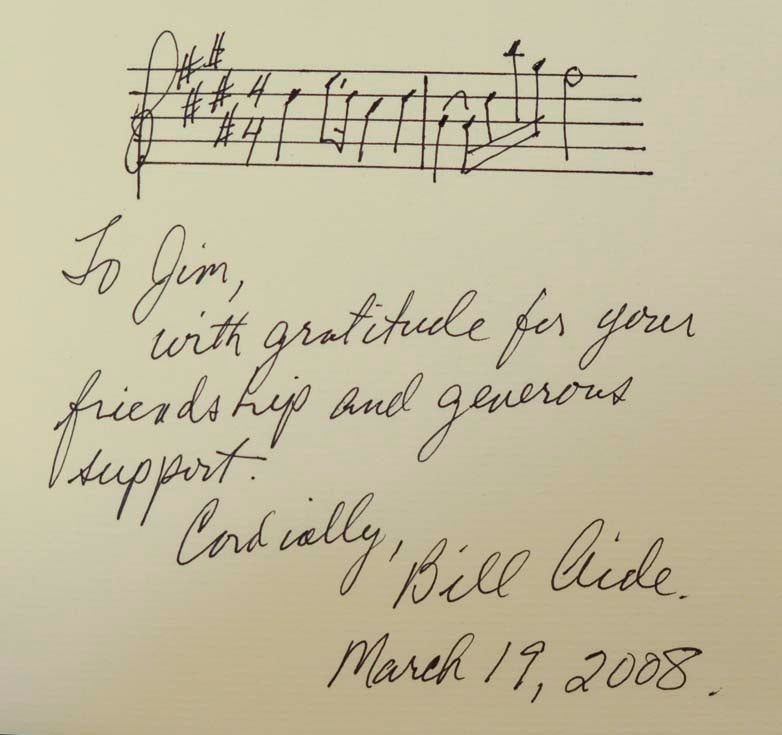 4
4
To Jim,
with gratitude for your
friendship and generous
support.
Cordially,
Bill Aide.
March 19, 2008.